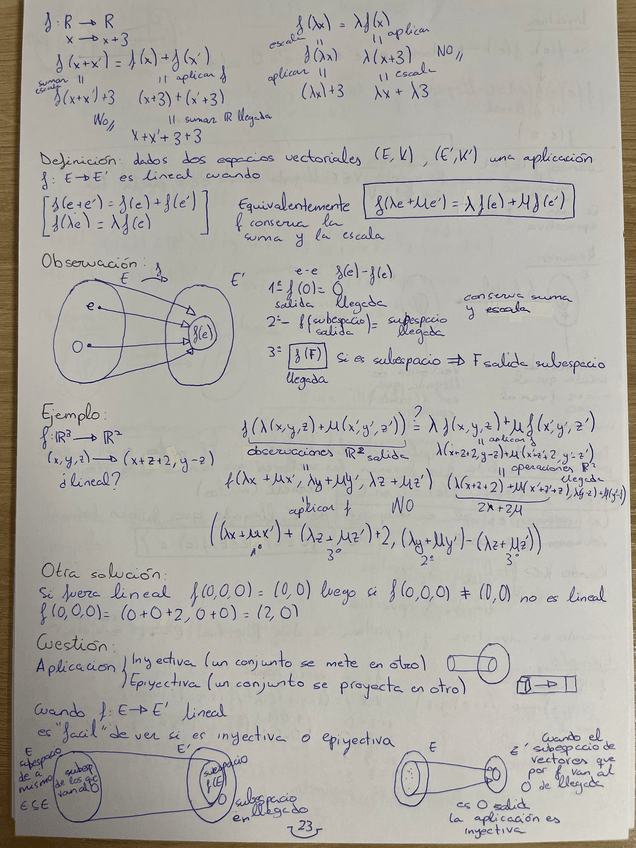 f: R → R
x → x+3
f(x+x') = f(x) + f(x')
sumar escala || || aplicar f
f(x+x')+3 (x+3)+(x'+3)
No,, || sumar R llegada
x+x'+3+3
f(λx) = λf(x)
escala || || aplicar
f(λx) λ(x+3) NO,,
aplicar || || escala
(λx)+3 λx + λ3
Definición: dados dos espacios vectoriales (E, K), (E', K') una aplicación
f: E→E' es lineal cuando
[f(e+e') = f(e) + f(e')
f(λe) = λf(e)]
Equivalentemente f(λe+μe') = λf(e)+μf(e')
f conserva la
suma y la escala
Observación: f
E E'
e
0
f(e)
e-e f(e)-f(e)
1ª f(0) = 0
salida llegada
conserva suma
y escala
2ª- f(subespacio) = subespacio
salida llegada
3ª f(F) Si es subespacio ⇒ F salida subespacio
llegada
Ejemplo:
f: R³ → R²
(x,y,z) → (x+z+2, y-z)
¿lineal?
f(λ(x,y,z)+μ(x',y',z')) ?= λf(x,y,z)+μf(x',y',z')
observaciones R² salida
|| aplicar f
λ(x+z+2, y-z)+μ(x'+z'+2, y'-z')
|| operaciones R²
llegada
f(λx+μx', λy+μy', λz+μz')
(λ(x+z+2)+μ(x'+z'+2), λ(y-z)+μ(y'-z'))
2λ+2μ
|| aplicar f NO
((λx+μx')+(λz+μz')+2, (λy+μy')-(λz+μz'))
1º 3º 2º 3º
Otra solución:
Si fuera lineal f(0,0,0) = (0,0) luego si f(0,0,0) ≠ (0,0) no es lineal
f(0,0,0) = (0+0+2, 0+0) = (2,0)
Cuestión:
Aplicación { Inyectiva (un conjunto se mete en otro)
Epiyectiva (un conjunto se proyecta en otro)
Cuando f: E→E' lineal
es "facil" de ver si es inyectiva o epiyectiva
E
subespacio
de a
mismo
E⊆E
subesp
de los que
van al 0
E'
subespacio
f(E)
0
subespacio
en llegado
E
E'
Cuando el
subespacio de
vectores que
por f van al
0 de llegada
es 0 salid
la aplicación es
inyectiva
23